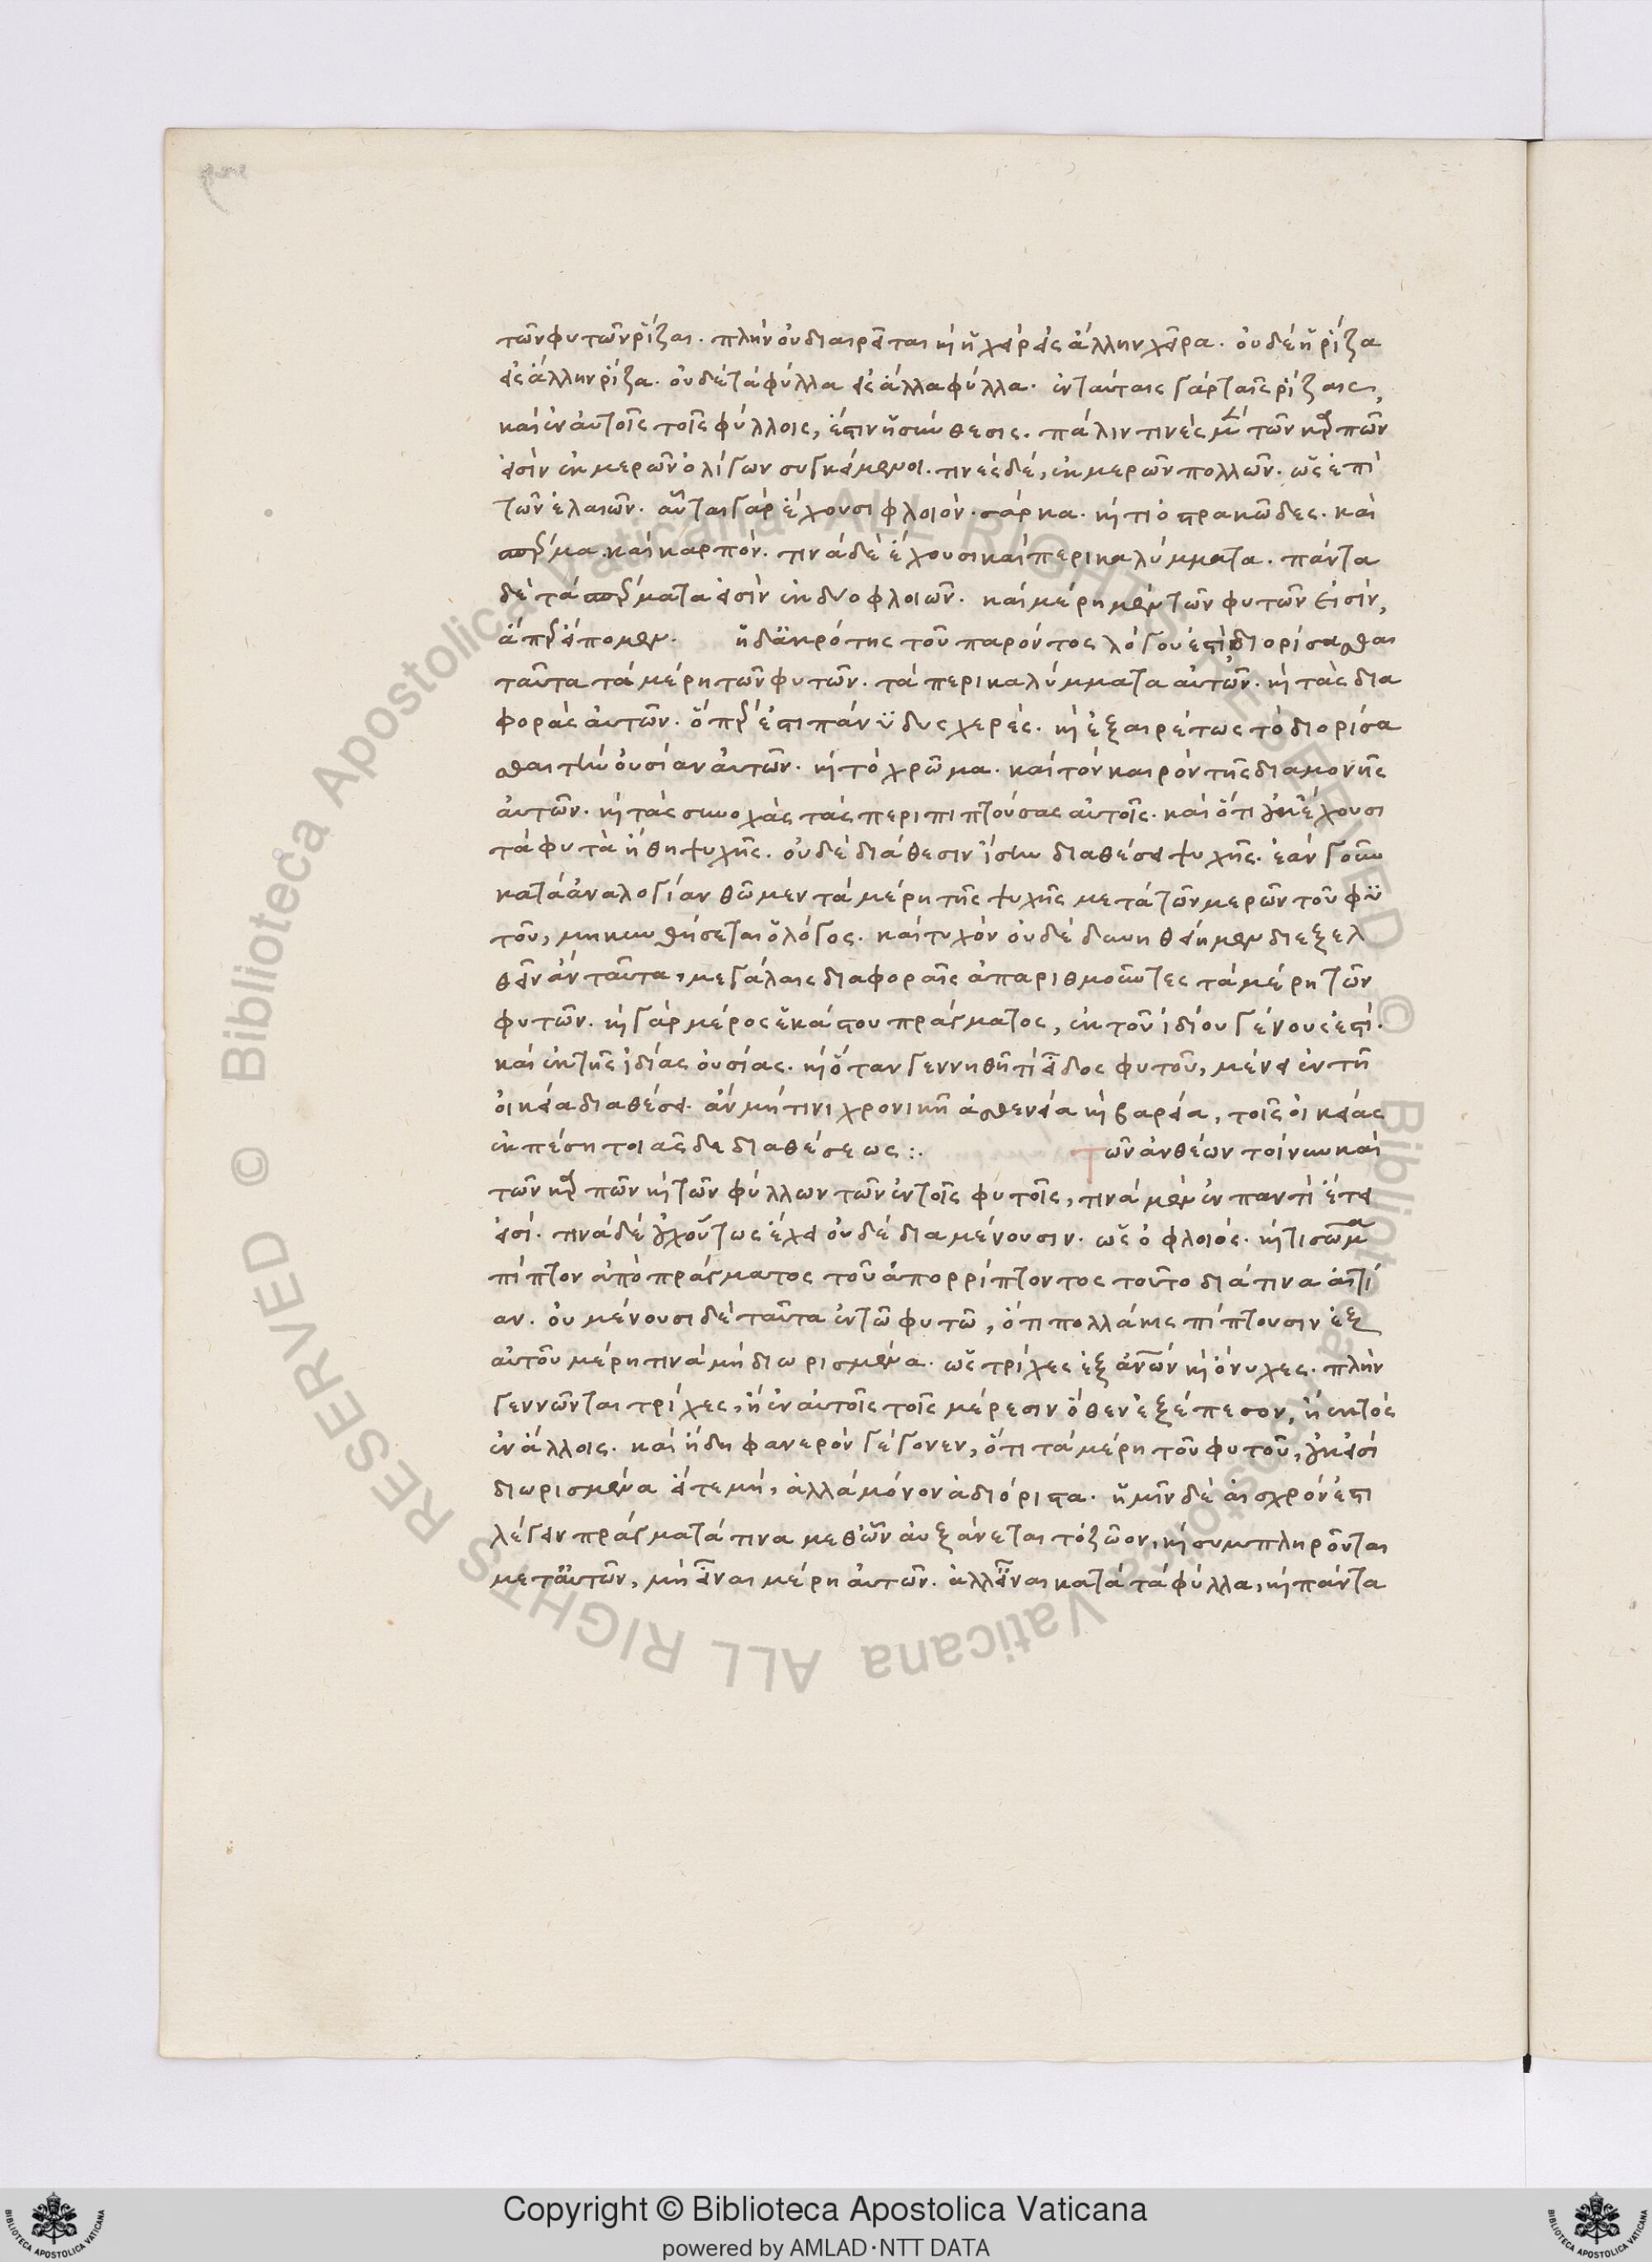 τῶν φυτῶν ῥίζαι. πλὴν οὐ διαιρεῖται κ(αὶ) ἡ χεὶρ εἰς ἄλλην χεῖρα. οὐδὲ ἡ ῥίζα
εἰς ἄλλην ῥίζα. οὐδὲ τὰ φύλλα εἰς ἄλλα φύλλα. ἐν ταύταις γὰρ ταῖς ῥίζαις,
καὶ ἐν αὐτοῖς τοῖς φύλλοις, ἔστιν ἡ σύνθεσις. πάλιν τινὲς μὲν τῶν καρπῶν
εἰσὶν ἐκ μερῶν ὀλίγων συγκείμενοι. τινὲς δὲ, ἐκ μερῶν πολλῶν. ὡς ἐπὶ
τῶν ἐλαιῶν. αὗται γὰρ ἔχουσι φλοιόν. σάρκα. κ(αὶ) τι ὀστρακῶδες. καὶ
σπέρμα. καὶ καρπόν. τινὰ δὲ ἔχουσι καὶ περικαλύμματα. πάντα
δὲ τὰ σπέρματα εἰσὶν ἐκ δύο φλοιῶν. καὶ μέρη μὲν τῶν φυτῶν εἰσὶν,
ἅπερ εἴπομεν. ἡ δ' ἀκρότης τοῦ παρόντος λόγου ἐστὶ διορίσασθαι
ταῦτα τὰ μέρη τῶν φυτῶν. τὰ περικαλύμματα αὐτῶν. κ(αὶ) τὰς δια
φορὰς αὐτῶν. ὅπερ ἐστι πάνυ δυσχερές. κ(αὶ) ἐξαιρέτως τὸ διορίσα
σθαι τὴν οὐσίαν αὐτῶν. κ(αὶ) τὸ χρῶμα. καὶ τὸν καιρὸν τῆς διαμονῆς
αὐτῶν. κ(αὶ) τὰς συνοχὰς τὰς περιπιπτούσας αὐτοῖς. καὶ ὅτι οὐκ ἔχουσι
τὰ φυτὰ ἤθη ψυχῆς. οὐδὲ διάθεσιν ἴσην διαθέσει ψυχῆς. ἐὰν γοῦν
κατὰ ἀναλογίαν θῶμεν τὰ μέρη τῆς ψυχῆς μετὰ τῶν μερῶν τοῦ φυ
τοῦ, μηκυνθήσεται ὁ λόγος. καὶ τυχὸν οὐδὲ δυνηθείημεν διεξελ
θεῖν ἂν ταῦτα, μεγάλαις διαφοραῖς ἀπαριθμοῦντες τὰ μέρη τῶν
φυτῶν. κ(αὶ) γὰρ μέρος ἑκάστου πράγματος, ἐκ τοῦ ἰδίου γένους ἐστί.
καὶ ἐκ τῆς ἰδίας οὐσίας. κ(αὶ) ὅταν γεννηθῆ τὶ εἶδος φυτοῦ, μένει ἐν τῆ
οἰκεία διαθέσει. ἂν μή τινι χρονικῆ ἀσθενεία κ(αὶ) βαρεία, τοῖς οἰκείας
ἐκπέση τοιᾶσδε διαθέσεως :.
Τῶν ἀνθέων τοίνυν καὶ
τῶν καρπῶν κ(αὶ) τῶν φύλλων τῶν ἐν τοῖς φυτοῖς, τινὰ μὲν ἐν παντὶ ἔτει
εἰσί. τινὰ δὲ οὐχ οὕτως ἔχει οὐδὲ διαμένουσιν. ὡς ὁ φλοιός. κ(αὶ) τι σῶμα
πίπτον ἀπὸ πράγματος τοῦ ἀπορρίπτοντος τοῦτο διά τινα αἰτί
αν. οὐ μένουσι δὲ ταῦτα ἐν τῶ φυτῶ, ὅτι πολλάκις πίπτουσιν ἐξ
αὐτοῦ μέρη τινὰ μὴ διωρισμένα. ὡς τρίχες ἐξ ἀνων κ(αὶ) ὄνυχες. πλὴν
γεννῶνται τρίχες, ἢ ἐν αὐτοῖς τοῖς μέρεσιν ὅθεν ἐξέπεσον, ἢ ἐκτὸς
ἐν ἄλλοις. καὶ ἤδη φανερὸν γέγονεν, ὅτι τὰ μέρη τοῦ φυτοῦ, οὐκ εἰσὶ
διωρισμένα εἴτε μὴ, ἀλλὰ μόνον ἀδιόριστα. ἡμῖν δὲ αἰσχρόν ἐστι
λέγειν πράγματά τινα μεθ' ὧν αὐξάνεται τὸ ζῶον, κ(αὶ) συμπληροῦνται
μετ' αὐτῶν, μὴ εἶναι μέρη αὐτῶν. ἀλλ' εἶναι κατὰ τὰ φύλλα, κ(αὶ) πάντα
© Biblioteca Apostolica Vaticana ALL RIGHTS RESERVED
© Biblioteca Apostolica Vaticana ALL RIGHTS RESERVED
Copyright © Biblioteca Apostolica Vaticana
powered by AMLAD・NTT DATA
BIBLIOTECA APOSTOLICA VATICANA
BIBLIOTECA APOSTOLICA VATICANA